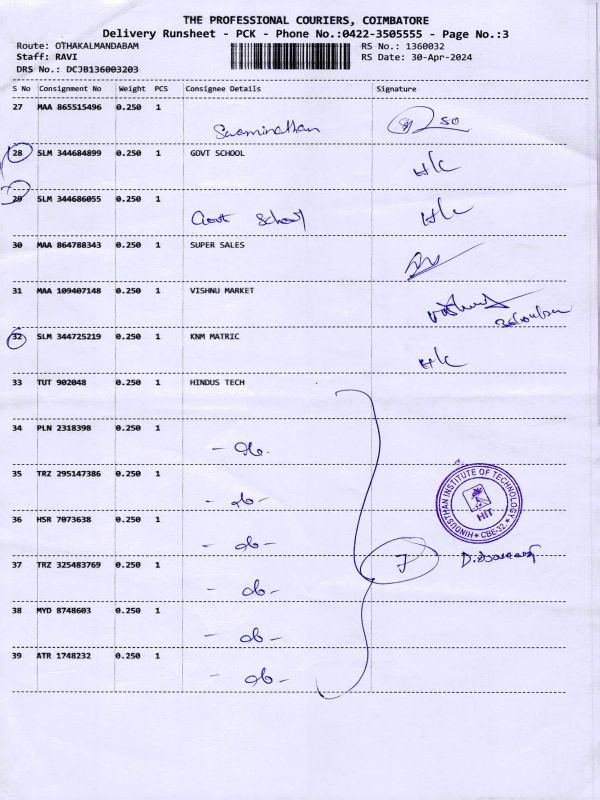 THE PROFESSIONAL COURIERS, COIMBATORE
Delivery Runsheet - PCK - Phone No.:0422-3505555 - Page No.:3
Route: OTHAKALMANDABAM
RS No.: 1360032
Staff: RAVI
RS Date: 30-Apr-2024
DRS No.: DCJB136003203
S No Consignment No Weight PCS Consignee Details Signature
27 MAA 865515496 0.250 1
Swaminathan 50
28 SLM 344684899 0.250 1 GOVT SCHOOL
H/C
29 SLM 344686055 0.250 1
Govt School H/C
30 MAA 864788343 0.250 1 SUPER SALES
31 MAA 109407148 0.250 1 VISHNU MARKET
32 SLM 344725219 0.250 1 KNM MATRIC
H/C
33 TUT 902048 0.250 1 HINDUS TECH
34 PLN 2318398 0.250 1
35 TRZ 295147386 0.250 1
36 HSR 7073638 0.250 1
37 TRZ 325483769 0.250 1
38 MYD 8748603 0.250 1
39 ATR 1748232 0.250 1
7
HINDUSTHAN INSTITUTE OF TECHNOLOGY
HIT
CBE-32.